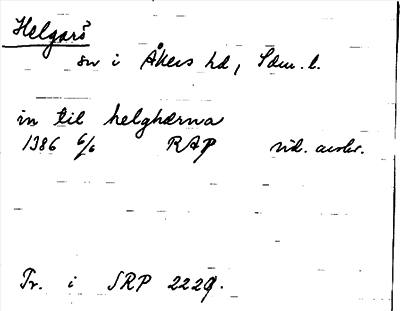 Helgarö
sn i Åkers hd, Södm. l.
in til helghærna
1386 6/6 RAP vid. avskr.
Tr. i SRP 2229.